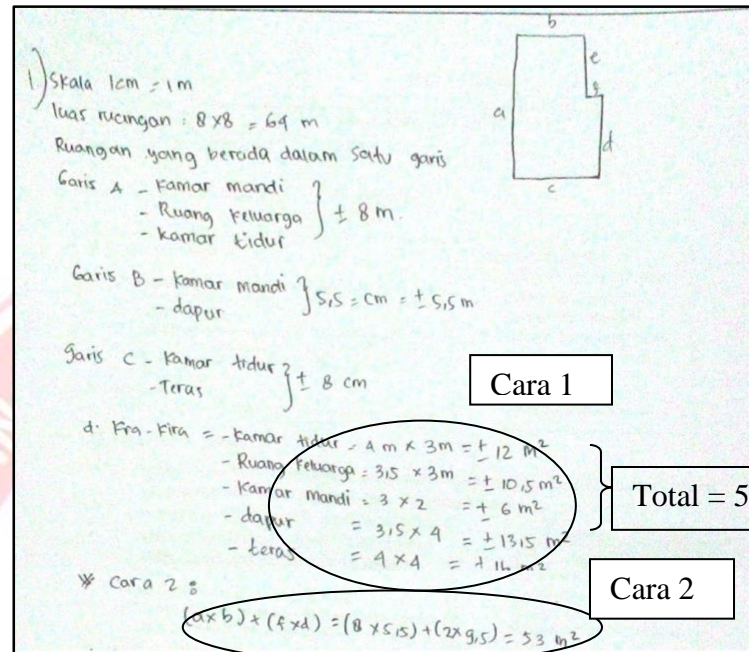 b
e
f
a
d
c
1) Skala 1cm = 1m
luas rucingan : 8x8 = 64 m
Ruangan yang berada dalam satu garis
Garis A - Kamar mandi
- Ruang Keluarga
- Kamar tidur
± 8 m.
Garis B - Kamar mandi
- dapur
5,5 = cm = ± 5,5 m
garis C - Kamar tidur
- Teras
± 8 cm
Cara 1
d. Kira-Kira = - Kamar tidur = 4 m x 3m = ± 12 m²
- Ruang Keluarga = 3,5 x 3m = ± 10,5 m²
- Kamar mandi = 3 x 2 = ± 6 m²
- dapur = 3,5 x 4 = ± 13,5 m²
- teras = 4 x 4 = ± 16 m²
Total = 5
Cara 2
* Cara 2 :
(a x b) + (f x d) = (8 x 5,5) + (2 x 9,5) = 53 m²